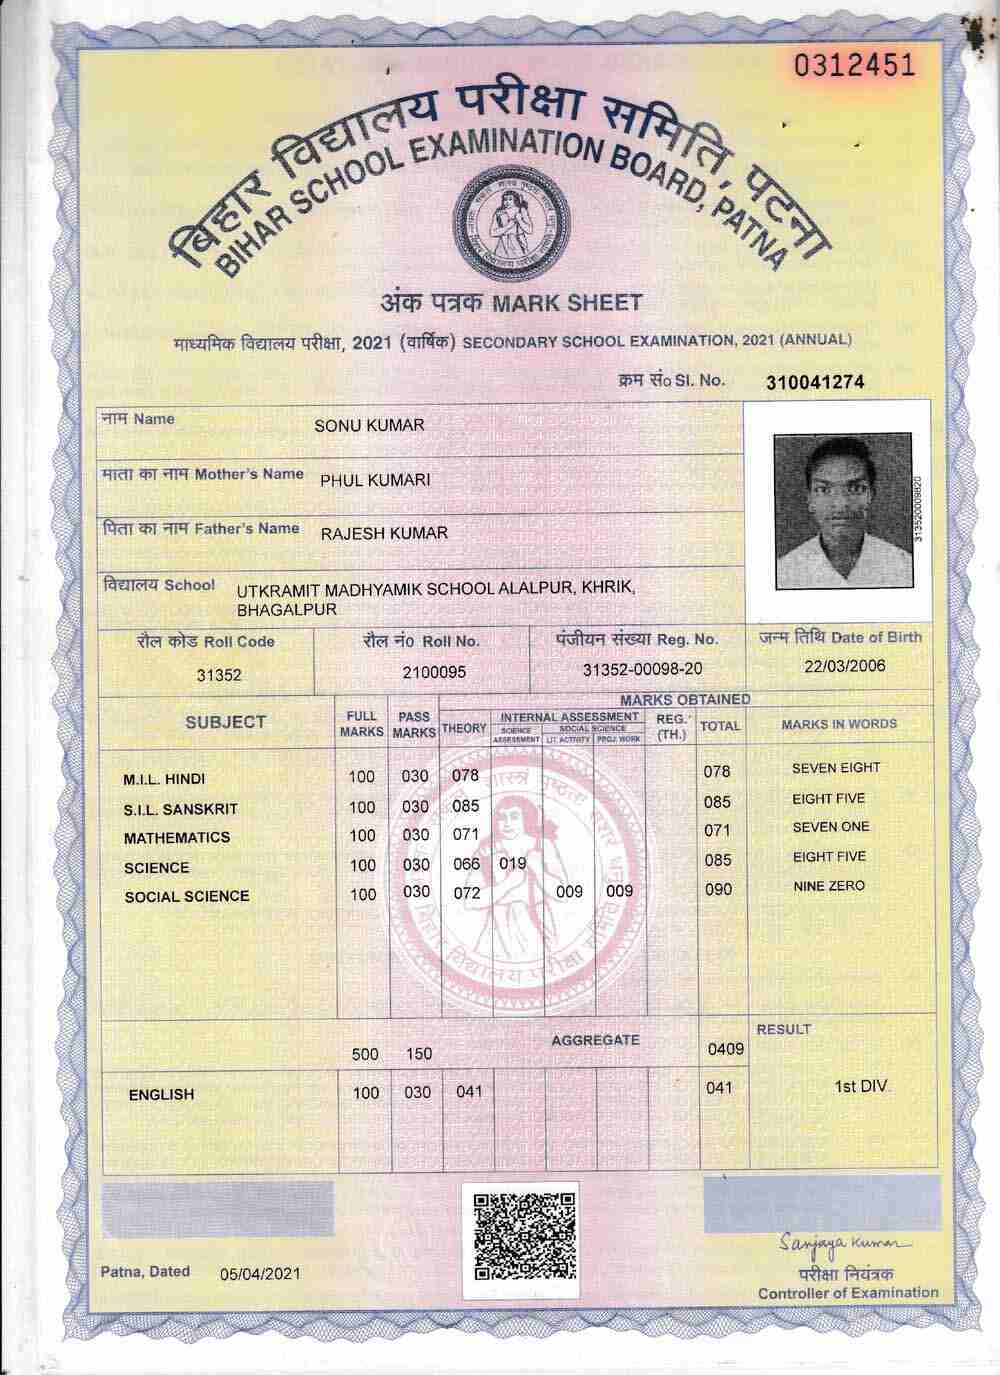 0312451
बिहार विद्यालय परीक्षा समिति, पटना
BIHAR SCHOOL EXAMINATION BOARD, PATNA
अंक पत्रक MARK SHEET
माध्यमिक विद्यालय परीक्षा, 2021 (वार्षिक) SECONDARY SCHOOL EXAMINATION, 2021 (ANNUAL)
क्रम सं० Sl. No. 310041274
नाम Name SONU KUMAR
माता का नाम Mother's Name PHUL KUMARI
पिता का नाम Father's Name RAJESH KUMAR
313520009820
विद्यालय School UTKRAMIT MADHYAMIK SCHOOL ALALPUR, KHRIK,
BHAGALPUR
रौल कोड Roll Code रौल नं० Roll No. पंजीयन संख्या Reg. No. जन्म तिथि Date of Birth
31352 2100095 31352-00098-20 22/03/2006
SUBJECT FULL MARKS PASS MARKS MARKS OBTAINED
THEORY INTERNAL ASSESSMENT REG. (TH.) TOTAL MARKS IN WORDS
SCIENCE ASSESSMENT SOCIAL SCIENCE LIT. ACTIVITY PROJ. WORK
M.I.L. HINDI 100 030 078 078 SEVEN EIGHT
S.I.L. SANSKRIT 100 030 085 085 EIGHT FIVE
MATHEMATICS 100 030 071 071 SEVEN ONE
SCIENCE 100 030 066 019 085 EIGHT FIVE
SOCIAL SCIENCE 100 030 072 009 009 090 NINE ZERO
बिहार विद्यालय परीक्षा समिति
500 150 AGGREGATE 0409 RESULT
ENGLISH 100 030 041 041 1st DIV.
Sanjaya Kumar
Patna, Dated 05/04/2021
परीक्षा नियंत्रक
Controller of Examination